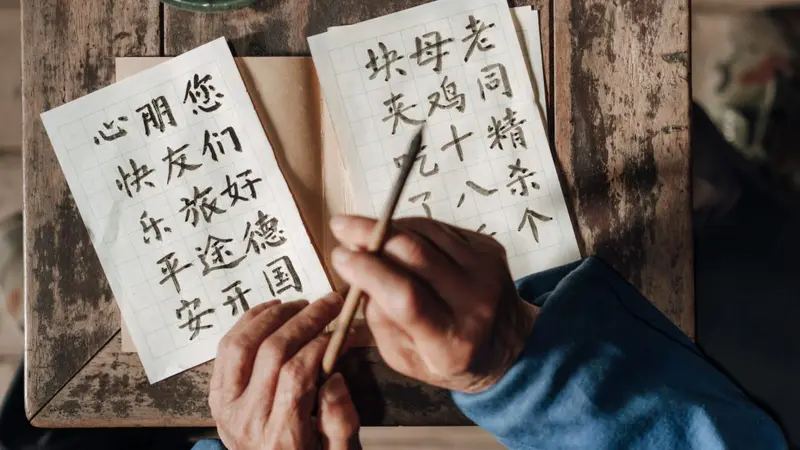 老同精杀个
母鸡十八
块夹吃了
您们好德国
朋友旅途开
心快乐平安